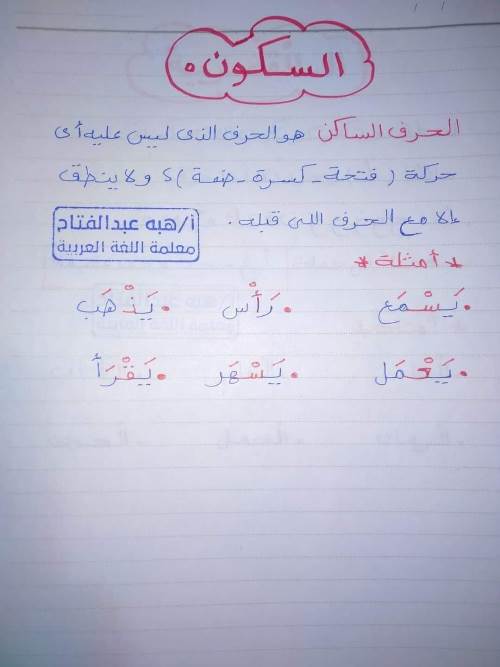 السكون ْ
الحرف الساكن هو الحرف الذى ليس عليه أى
حركة ( فتحة - كسرة - ضمة ) ، ولا ينطق
إلا مع الحرف اللى قبله .
أ/هبه عبدالفتاح
معلمة اللغة العربية
* أمثلة *
• يَسْمَع • رَأْس • يَذْهَب
• يَعْمَل • يَسْهَر • يَقْرَأ